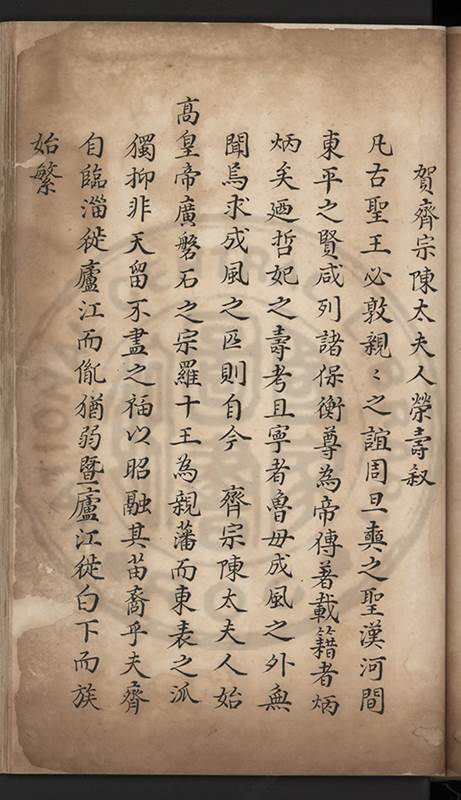 賀齊宗陳太夫人榮壽叙
凡古聖王必敦親〻之誼周旦奭之聖漢河間
東平之賢咸列諸保衡尊為帝傅著載籍者炳
炳矣廼哲妃之壽考且寧者魯毋成風之外無
聞焉求成風之匹則自今　齊宗陳太夫人始
高皇帝廣磐石之宗羅十王為親藩而東表之派
獨抑非天留不盡之福以昭融其苗裔乎夫齊
自臨淄徙廬江而胤猶弱暨廬江徙白下而族
始繁